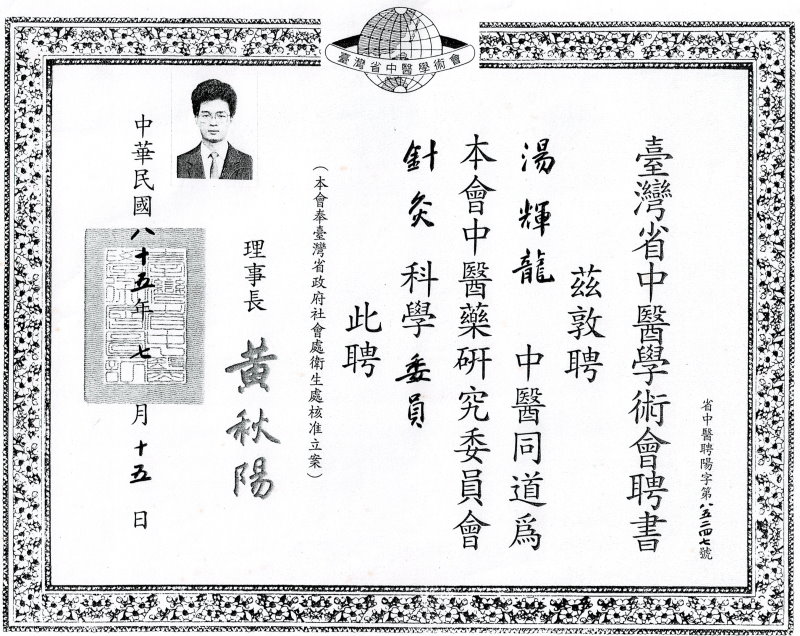 臺灣省中醫學術會
臺灣省中醫學術會聘書
省中醫聘陽字第八五二四七號
茲敦聘
湯輝龍 中醫同道爲
本會中醫藥硏究委員會
針灸科學委員
此聘
(本會奉臺灣省政府社會處衛生處核准立案)
理事長 黃秋陽
中華民國八十五年七月十五日